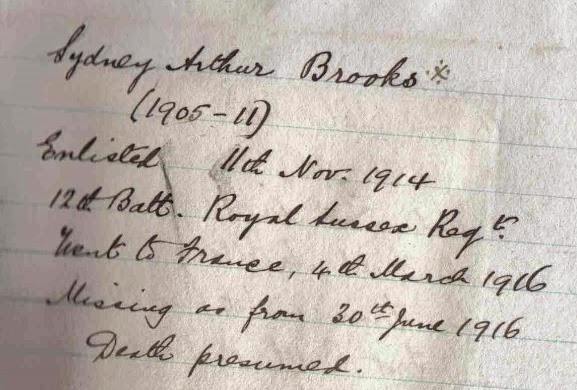 Sydney Arthur Brooks ※
(1905-11)
Enlisted 11th Nov. 1914
12th Batt. Royal Sussex Regt.
Went to France, 4th March 1916
Missing as from 30th June 1916
Death presumed.